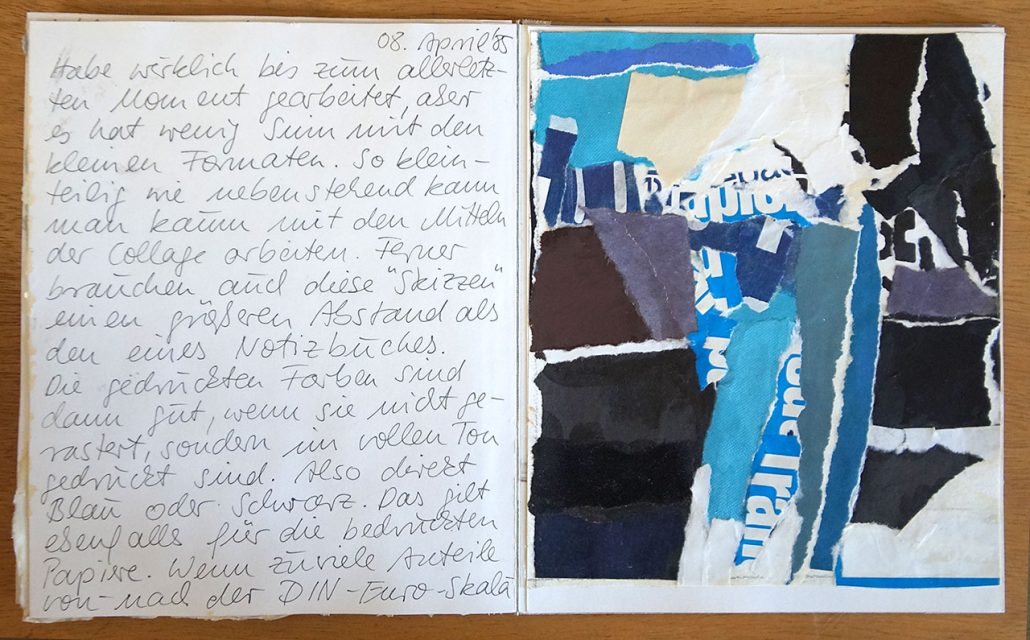 08. April '85
Habe wirklich bis zum allerletz-
ten Moment gearbeitet, aber
es hat wenig Sinn mit den
kleinen Formaten. So klein-
teilig wie nebenstehend kann
man kaum mit den Mitteln
der Collage arbeiten. Ferner
brauchen auch diese "Skizzen"
einen größeren Abstand als
den eines Notizbuches.
Die gedruckten Farben sind
dann gut, wenn sie nicht ge-
rastert, sondern im vollen Ton
gedruckt sind. Also direkt
Blau oder Schwarz. Das gilt
ebenfalls für die bedruckten
Papiere. Wenn zuviele Anteile
von- nach der DIN-Euro-Skala